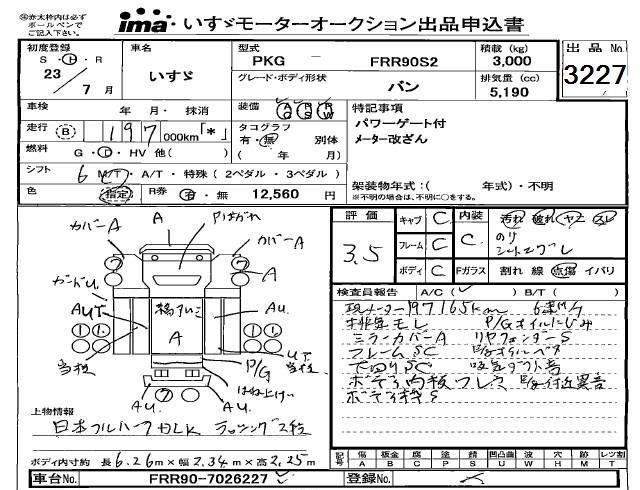 ※赤太枠内は必ず
ボールペンで
ご記入下さい。
ima いすゞモーターオークション出品申込書
初度登録 車名 型式 積載 (kg) 出品No.
S・H・R いすゞ PKG FRR90S2 3,000 3227
23 7 月 グレード・ボディ形状 バン 排気量 (cc) 5,190
車検 年 月・抹消 装備 AC PS PW 特記事項
パワーゲート付
走行 B 197 000km「*」 タコグラフ 有・無 別体 メーター改ざん
燃料 G・D・HV 他( ) ( 年 月)
シフト 6 M/T・A/T・特殊 (2ペダル・3ペダル)
架装物年式:( 年式)・不明
色 指定 R券 有・無 12,560 円 ※不明の場合は、不明に○をする。
評価 3.5 キャブ C 内装 C 汚れ 破れ ヤニ スレ
フレーム C のり
ボディ C Fガラス 割れ 線 点傷 イバリ
検査員報告 A/C( ) B/T( )
現メーター197165km
排気モレ P/Gオイルにじみ
ミラーカバーA リヤフェンダーS
フレームSC
下回りSC
カバーA A カバーA
A
ガードU
AU
A
P/G
はね上げ
AU AU
上物情報
日本フルハーフ ラッシング2段
ボディ内寸約 長6.26m×幅2.34m×高2.25m
記号 傷 板金 腐 塗 錆 凹凸曲 波 穴 跡 レツ割
A B C P S U W H M T
車台No. FRR90-7026227 登録No.